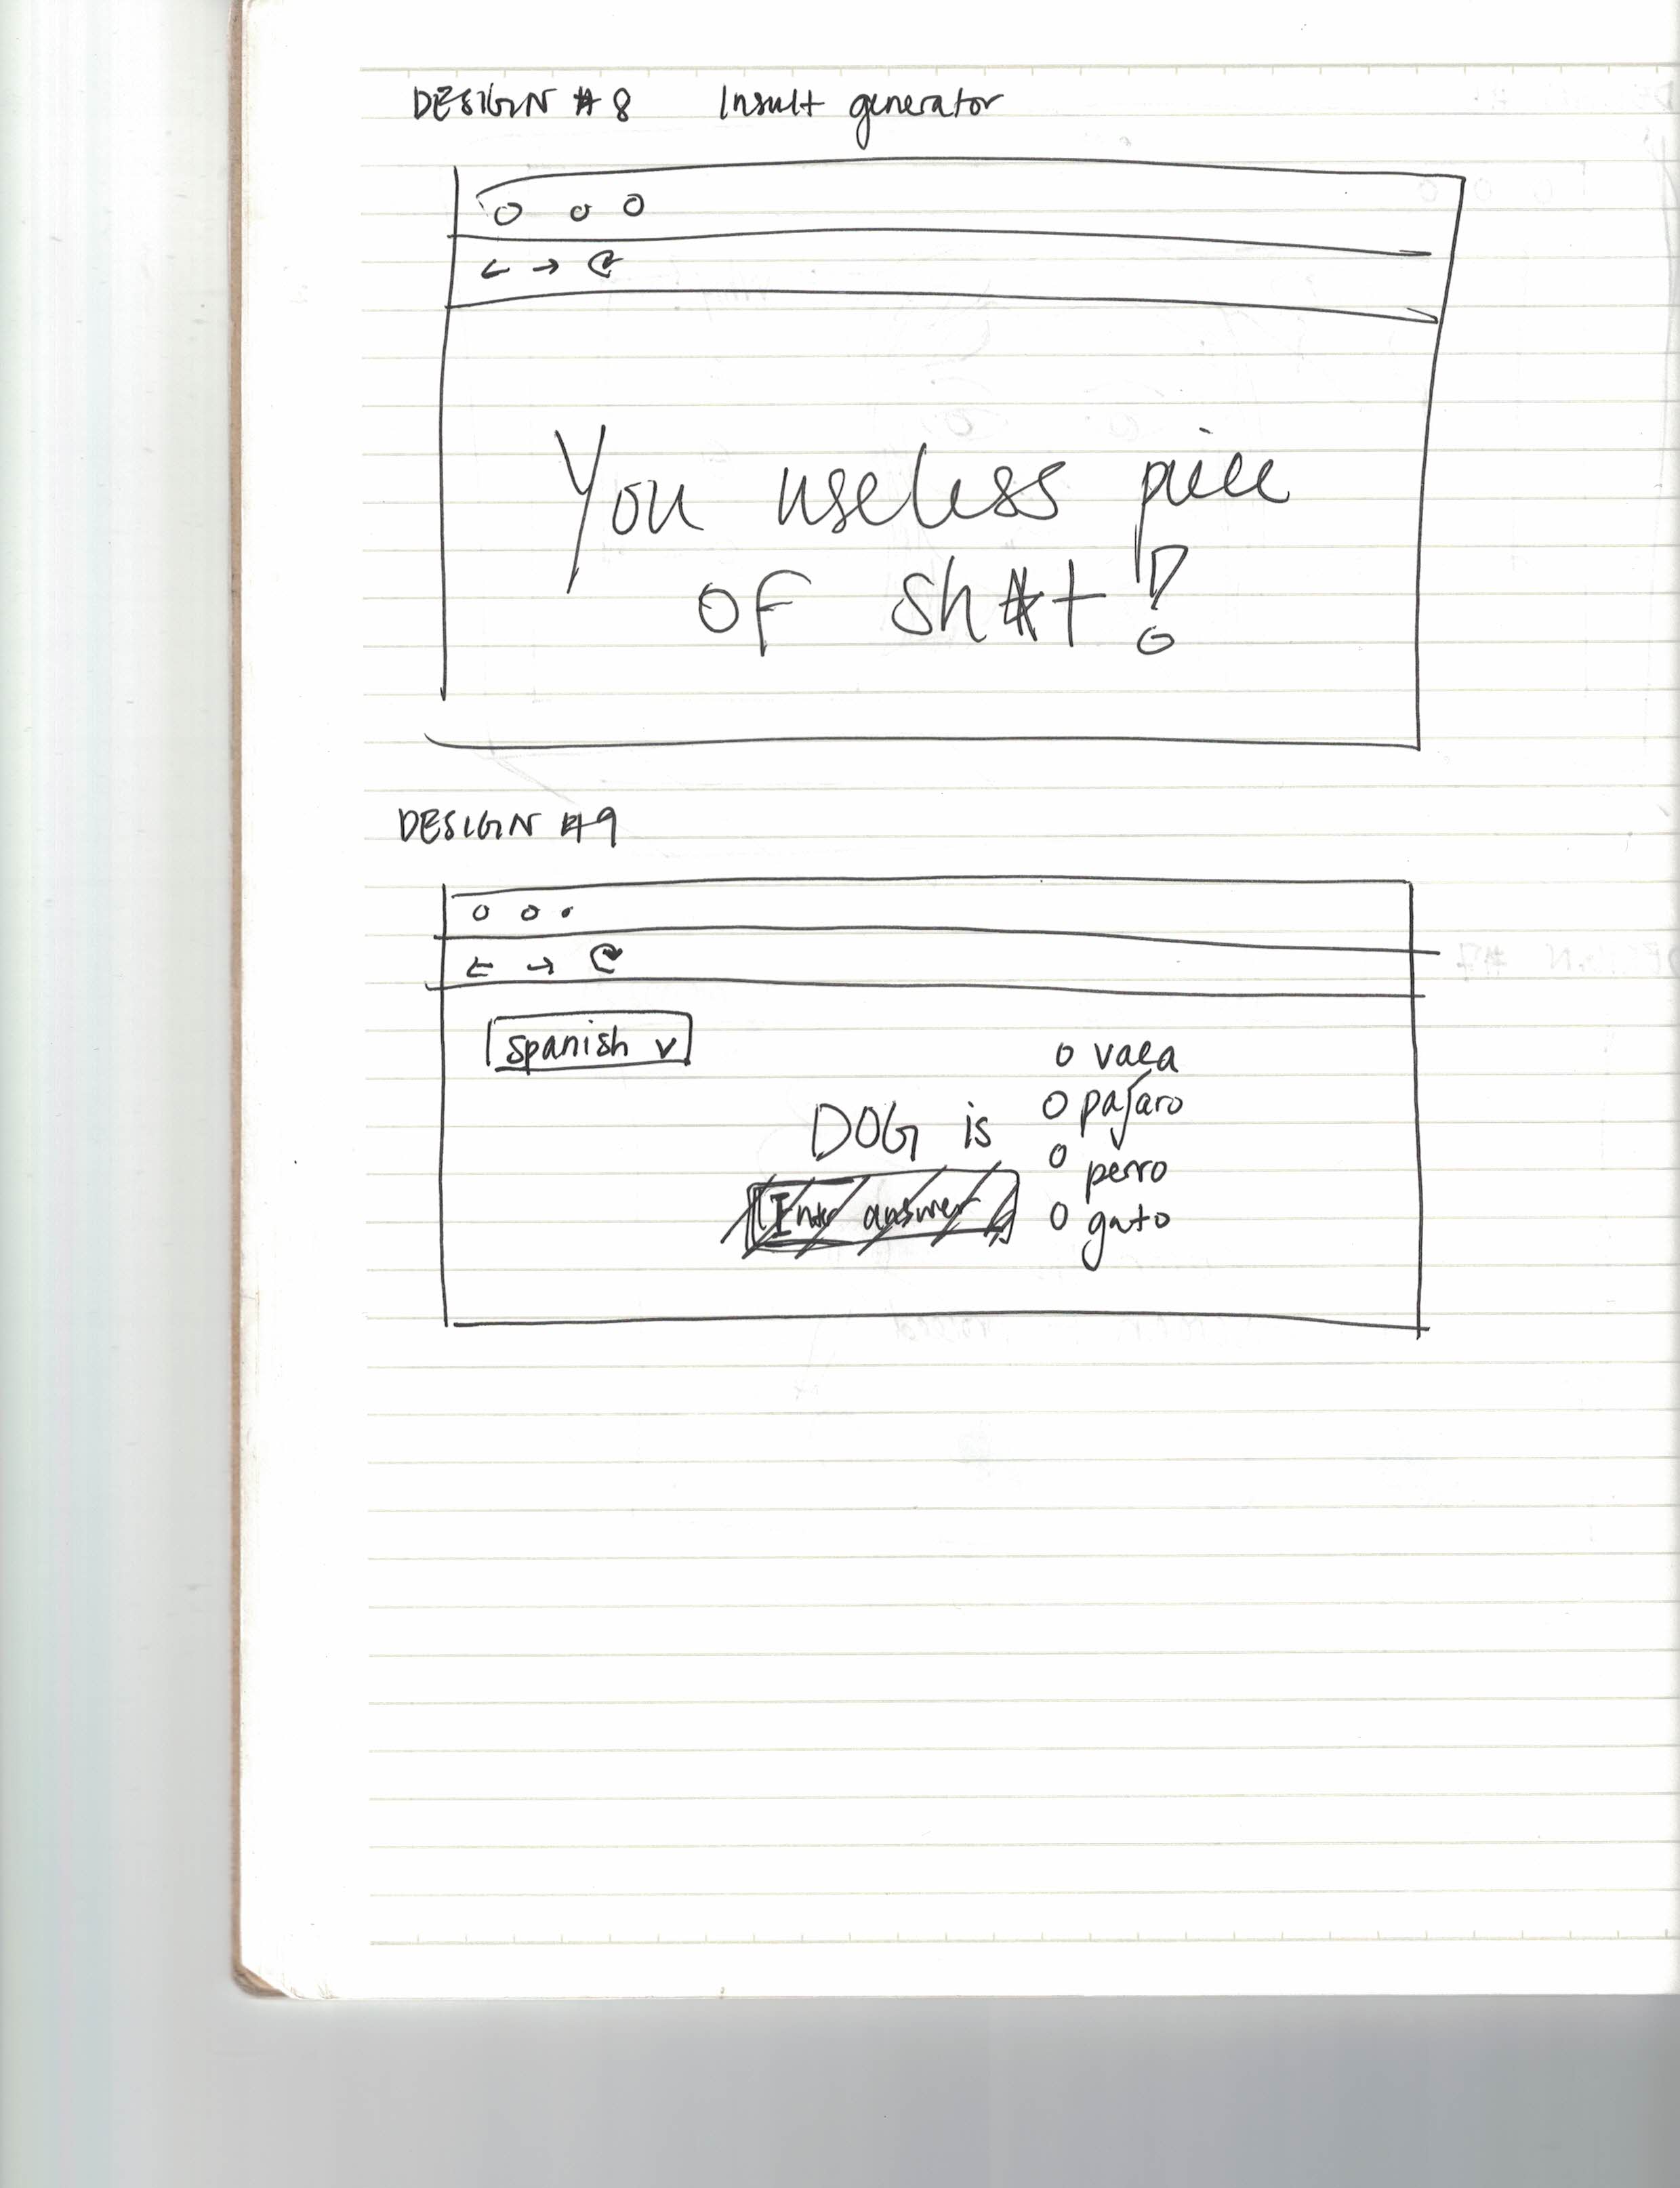 DESIGN #8 Insult generator
You useless piece
of sh#t!
DESIGN #9
spanish v
DOG is
Enter answer
vaca
pájaro
perro
gato